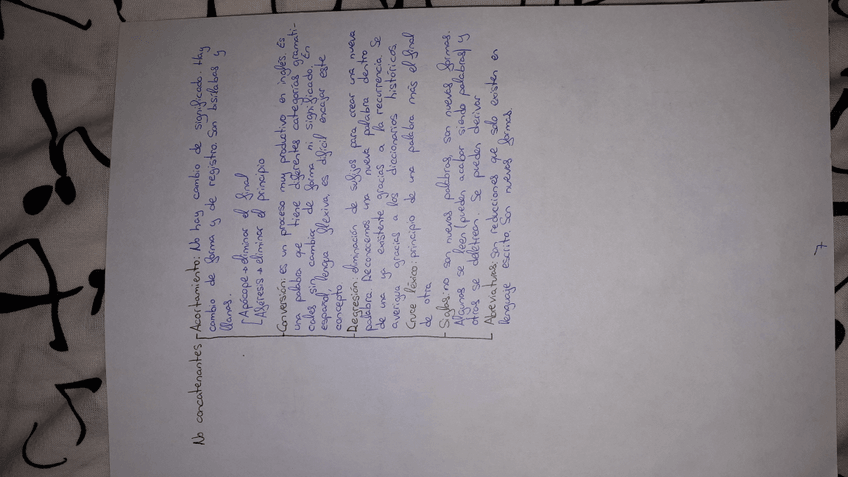 No concatenantes Acortamiento: No hay cambio de significado. Hay
cambio de forma y de registro. Son bisílabas y
llanas.
Apócope → eliminar el final
Aféresis → eliminar el principio
Conversión: es un proceso muy productivo en inglés. Es
una palabra que tiene diferentes categorías gramati-
cales sin cambiar de forma ni significado. En
español, lengua flexiva, es difícil encajar este
concepto
Regresión: eliminación de sufijos para crear una nueva
palabra. Reconocemos una nueva palabra dentro
de una ya existente gracias a la recurrencia. Se
averigua gracias a los diccionarios históricos
Cruce léxico: principio de una palabra más el final
de otra
Siglas: no son nuevas palabras, son nuevas formas.
Algunas se leen (pueden acabar siendo palabras) y
otras se deletrean. Se pueden derivar
Abreviaturas: son reducciones que solo existen en
lenguaje escrito. Son nuevas formas.
7